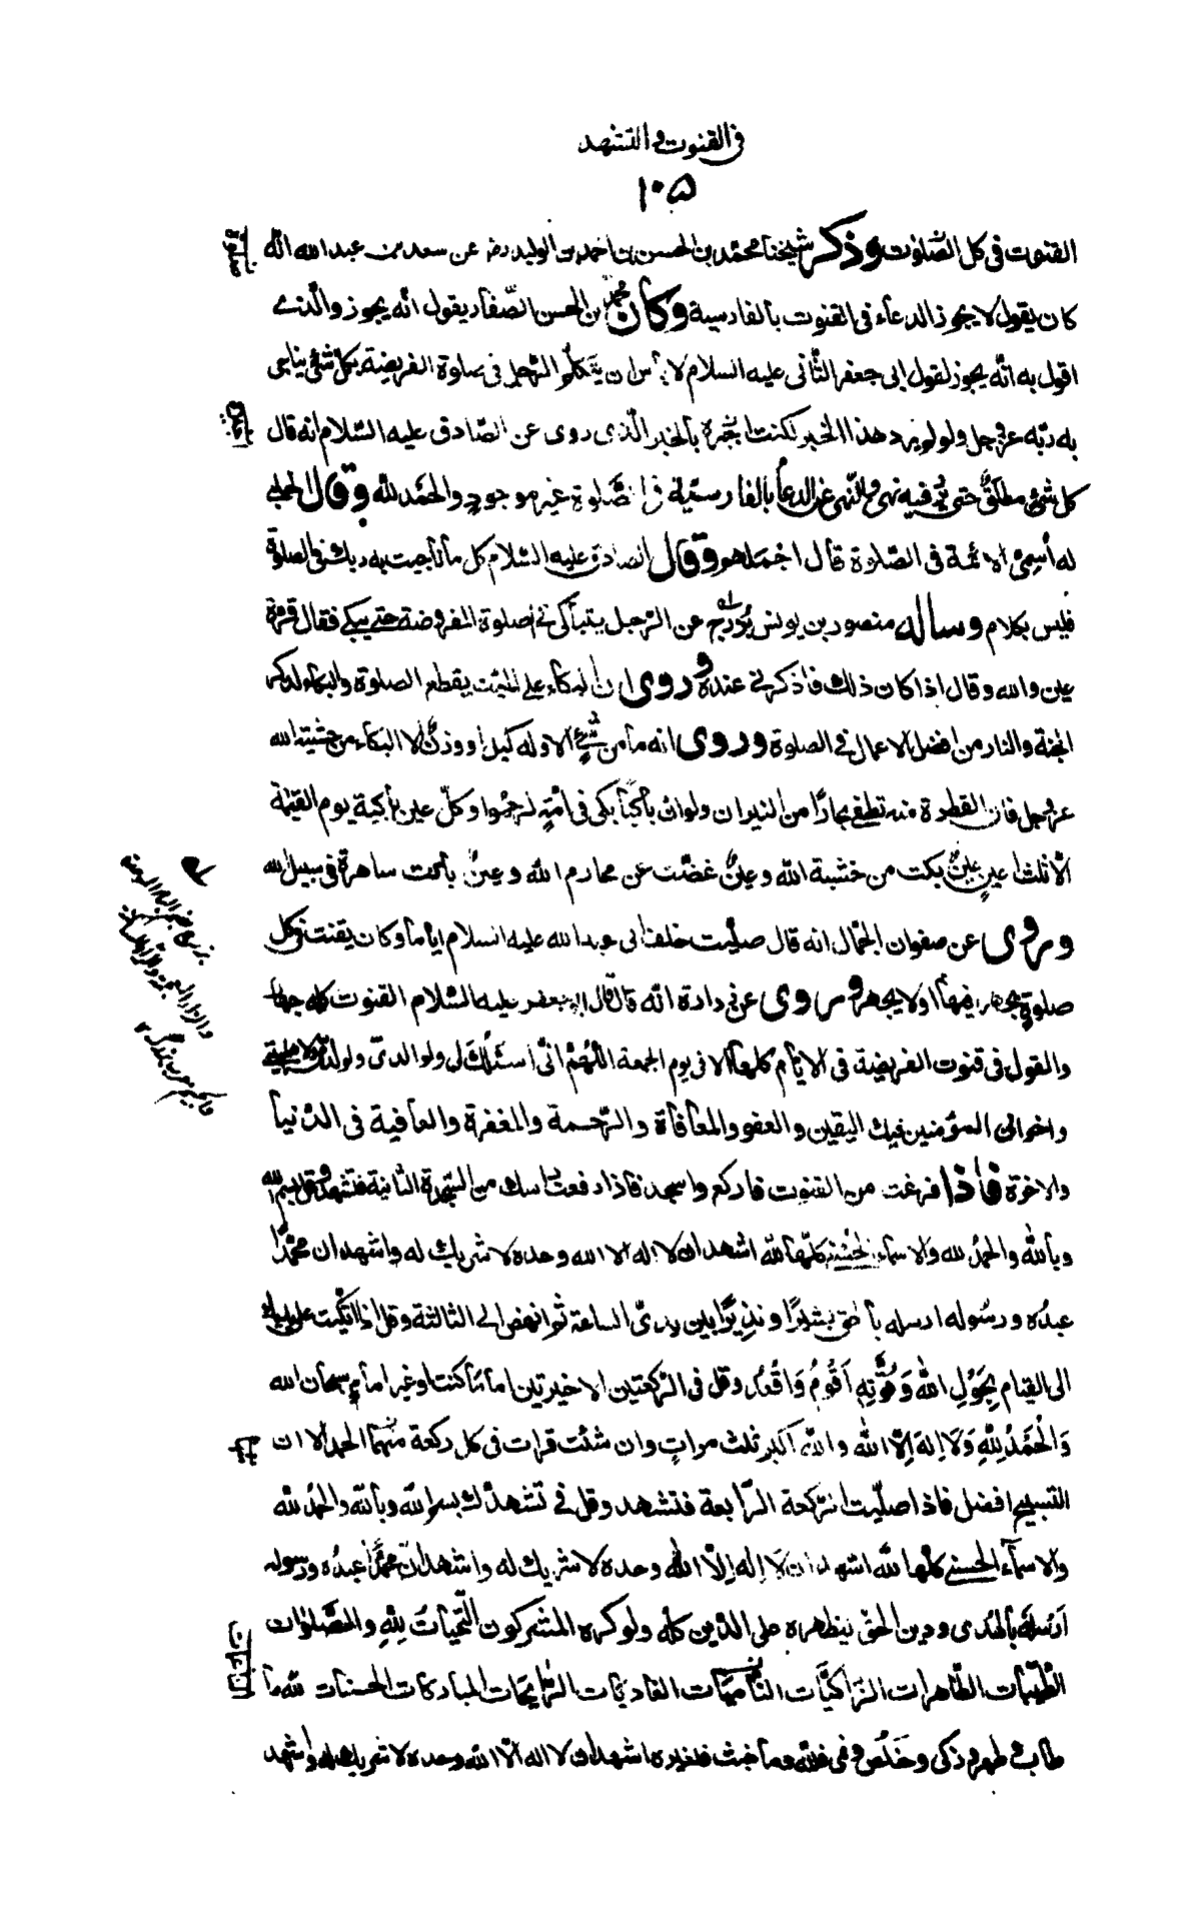 فی القنوت و التشهد
۱۰۵
القنوت فی کل الصّلوٰت وذکر شیخنا محمّد بن الحسن بن احمد بن الولید رضہ عن سعد بن عبد الله انّه
کان یقول لا یجوز الدعاء فی القنوت بالفارسیة وکان محمد بن الحسن الصّفار یقول انّه یجوز والّذی
اقول به انّه یجوز لقول ابی جعفر الثّانی علیه السلام لا باس ان یتکلّم الرّجل فی صلوة الفریضة بکل شئ یناجی
به ربّه عزّ وجل ولو لم یرد هذا الخبر لکنت اجیزه بالخبر الّذی روی عن الصّادق علیه السّلام انه قال
کل شئ مطلقٌ حتی یرد فیه نهی والنّهی عن الدعاء بالفارسیّة فی الصّلوة غیر موجود والحمد لله وقال الحلبی
له أسمّی الائمة فی الصّلوة قال اجملهم وقال الصادق علیه السّلام کل ما ناجیت به ربك فی الصلوة
فلیس بکلام وساله منصور بن یونس بزرج عن الرّجل یتباکی فی الصلوة المفروضة حتی یبکی فقال قرّة
عین والله وقال اذا کان ذلك فاذکرنی عنده وروی ان البکاء علی المیّت یقطع الصلوة والبکاء لذکر
الجنة والنار من افضل الاعمال فی الصلوة وروی انه ما من شئ الا وله کیل او وزن الا البکاء من خشیة الله
عزّ وجل فان القطرة منه تطفئ بحارًا من النیران ولو ان باکیًا بکی فی امّةٍ لرحموا وکلّ عین باکیة یوم القیٰمة
الّا ثلث اعین عینٌ بکت من خشیة الله وعینٌ غضّت عن محارم الله وعینٌ باتت ساهرة فی سبیل الله
وروی عن صفوان الجمّال انه قال صلّیت خلف ابی عبد الله علیه السلام ایاما وکان یقنت فی کل
صلوةٍ یجهر فیها او لا یجهر وروی عن زرارة انّه قال قال ابو جعفر علیه السّلام القنوت کله جهار
والقول فی قنوت الفریضة فی الایّام کلها الا فی یوم الجمعة اللّهمّ انّی اسئلك لی ولوالدیّ ولولدی ولاهل بیتی
واخوانی المؤمنین فیك الیقین والعفو والمعافاة والرّحمة والمغفرة والعافیة فی الدّنیا
والاخرة فاذا فرغت من القنوت فارکع واسجد فاذا رفعت راسك من السّجدة الثانیة فتشهد وقل بسم الله
وبالله والحمد لله والاسماء الحسنی کلّها لله اشهد ان لا اله الا الله وحده لا شریك له واشهد ان محمّدًا
عبدُه ورسُوله ارسله بالحق بشیرًا ونذیرًا بین یدی الساعة ثم انهض الی الثالثة وقل اذا اتّکیت علی یدیك
الی القیام بِحَوْلِ اللهِ وَقُوَّتِهِ اَقُومُ وَاَقْعُدُ وقل فی الرّکعتین الاخیرتین اماما کنت او غیر امامٍ سبحان الله
وَالْحَمْدُ لِلّٰهِ وَلَا اِلٰهَ اِلَّا اللهُ والله اکبر ثلث مراتٍ وان شئت قرات فی کل رکعة منهما الحمد الا ان
التسبیح افضل فاذا صلّیت الرّکعة الرّابعة فتشهد وقل فی تشهدّك بسم الله وبالله والحمد لله
والاسمآء الحسنی کلّها لله اشهد ان لَا اِله اِلّا الله وحده لا شریك له واشهد انّ محمّدًا عبدُه ورسوله
اَرسَلَهُ بالهُدی ودین الحق لیظهره علی الدّین کله ولو کره المشرکون التّحیاتُ لِلّٰهِ والصَّلوٰات
الطّیّبات الطّاهرات الزّاکیّات النّامیات الغادیات الرّایحات المبارکات الحسنات لله ما
طاب وطهر وزکی وخَلُص ونمی فلله وما خبث فلغیره اشهد ان لا اله الّا الله وحده لا شریك له واشهد